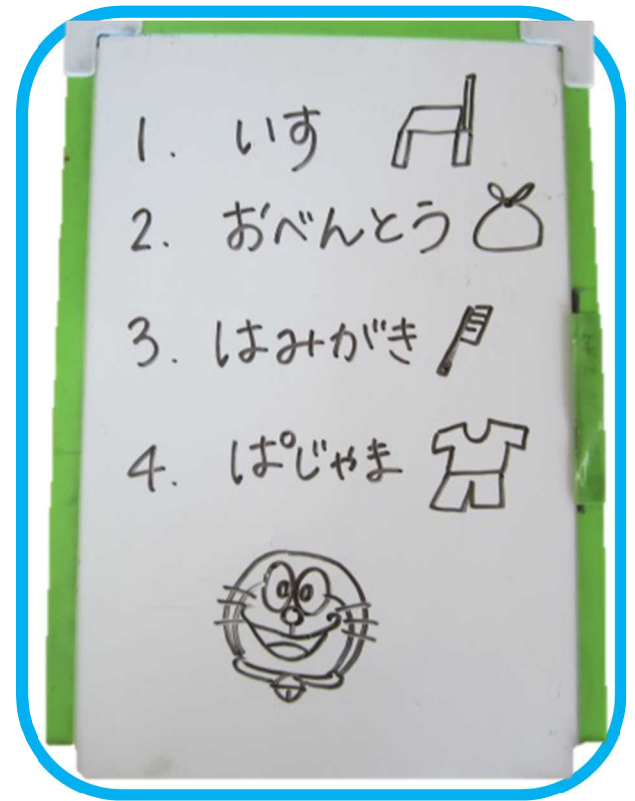 1. いす
2. おべんとう
3. はみがき
4. ぱじゃま